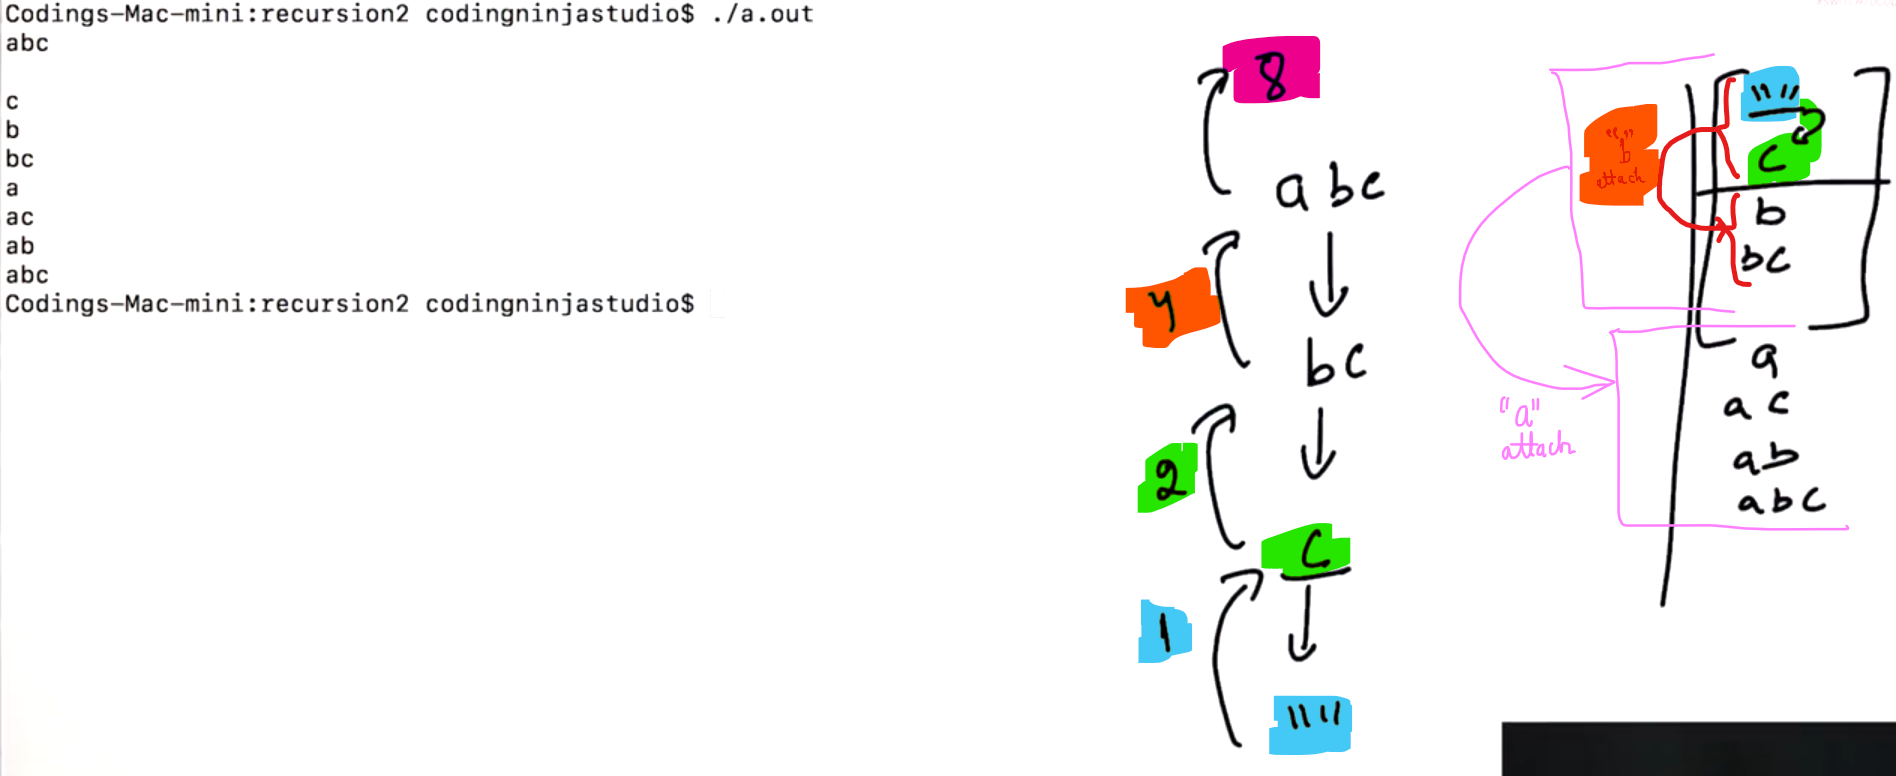 Codings-Mac-mini:recursion2 codingninjastudio$ ./a.out
abc
c
b
bc
a
ac
ab
abc
Codings-Mac-mini:recursion2 codingninjastudio$
8
abc
4
bc
2
c
1
""
""
c
"b"
attach
b
bc
a
ac
ab
abc
"a"
attach